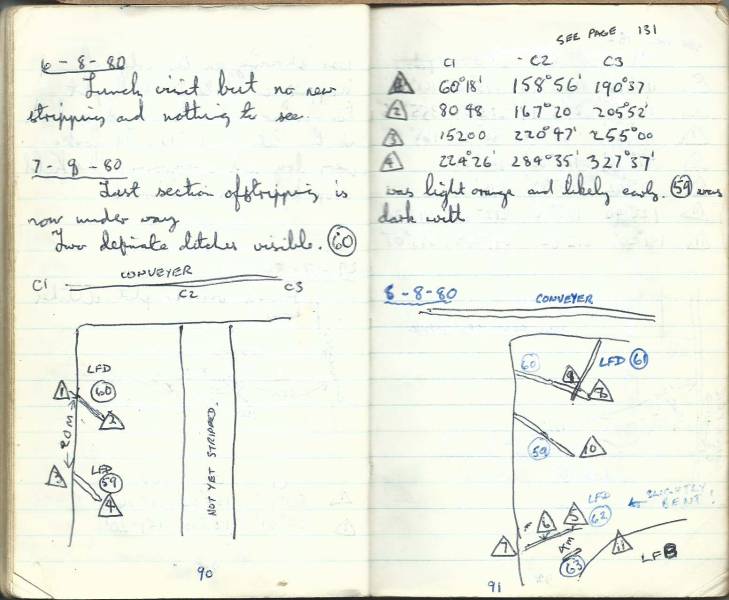 6-8-80
Lunch visit but no new
stripping and nothing to see.
7-8-80
Last section of stripping is
now under way
Two definate ditches visible. 60
CONVEYER
C1 C2 C3
LFD
1 60
2
20M
NOT YET STRIPPED.
3 LFD
59
4
90
SEE PAGE 131
C1 - C2 C3
1 60°18' 158°56' 190°37
2 80 48 167°20 205°52'
3 15200 220°47' 255°00
4 224°26' 284°35' 327°37'
was light orange and likely early. 59 was
dark with
8-8-80
CONVEYER
60 LFD 61
9 8
59 10
LFD SLIGHTLY
BENT!
6 5 62
7 11
4m LFB
63
91